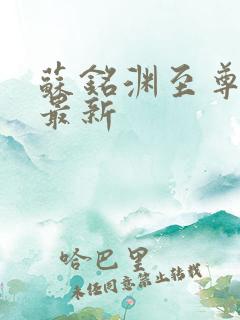 蘇銘渊至尊
最新
哈巴里
未经同意禁止转载